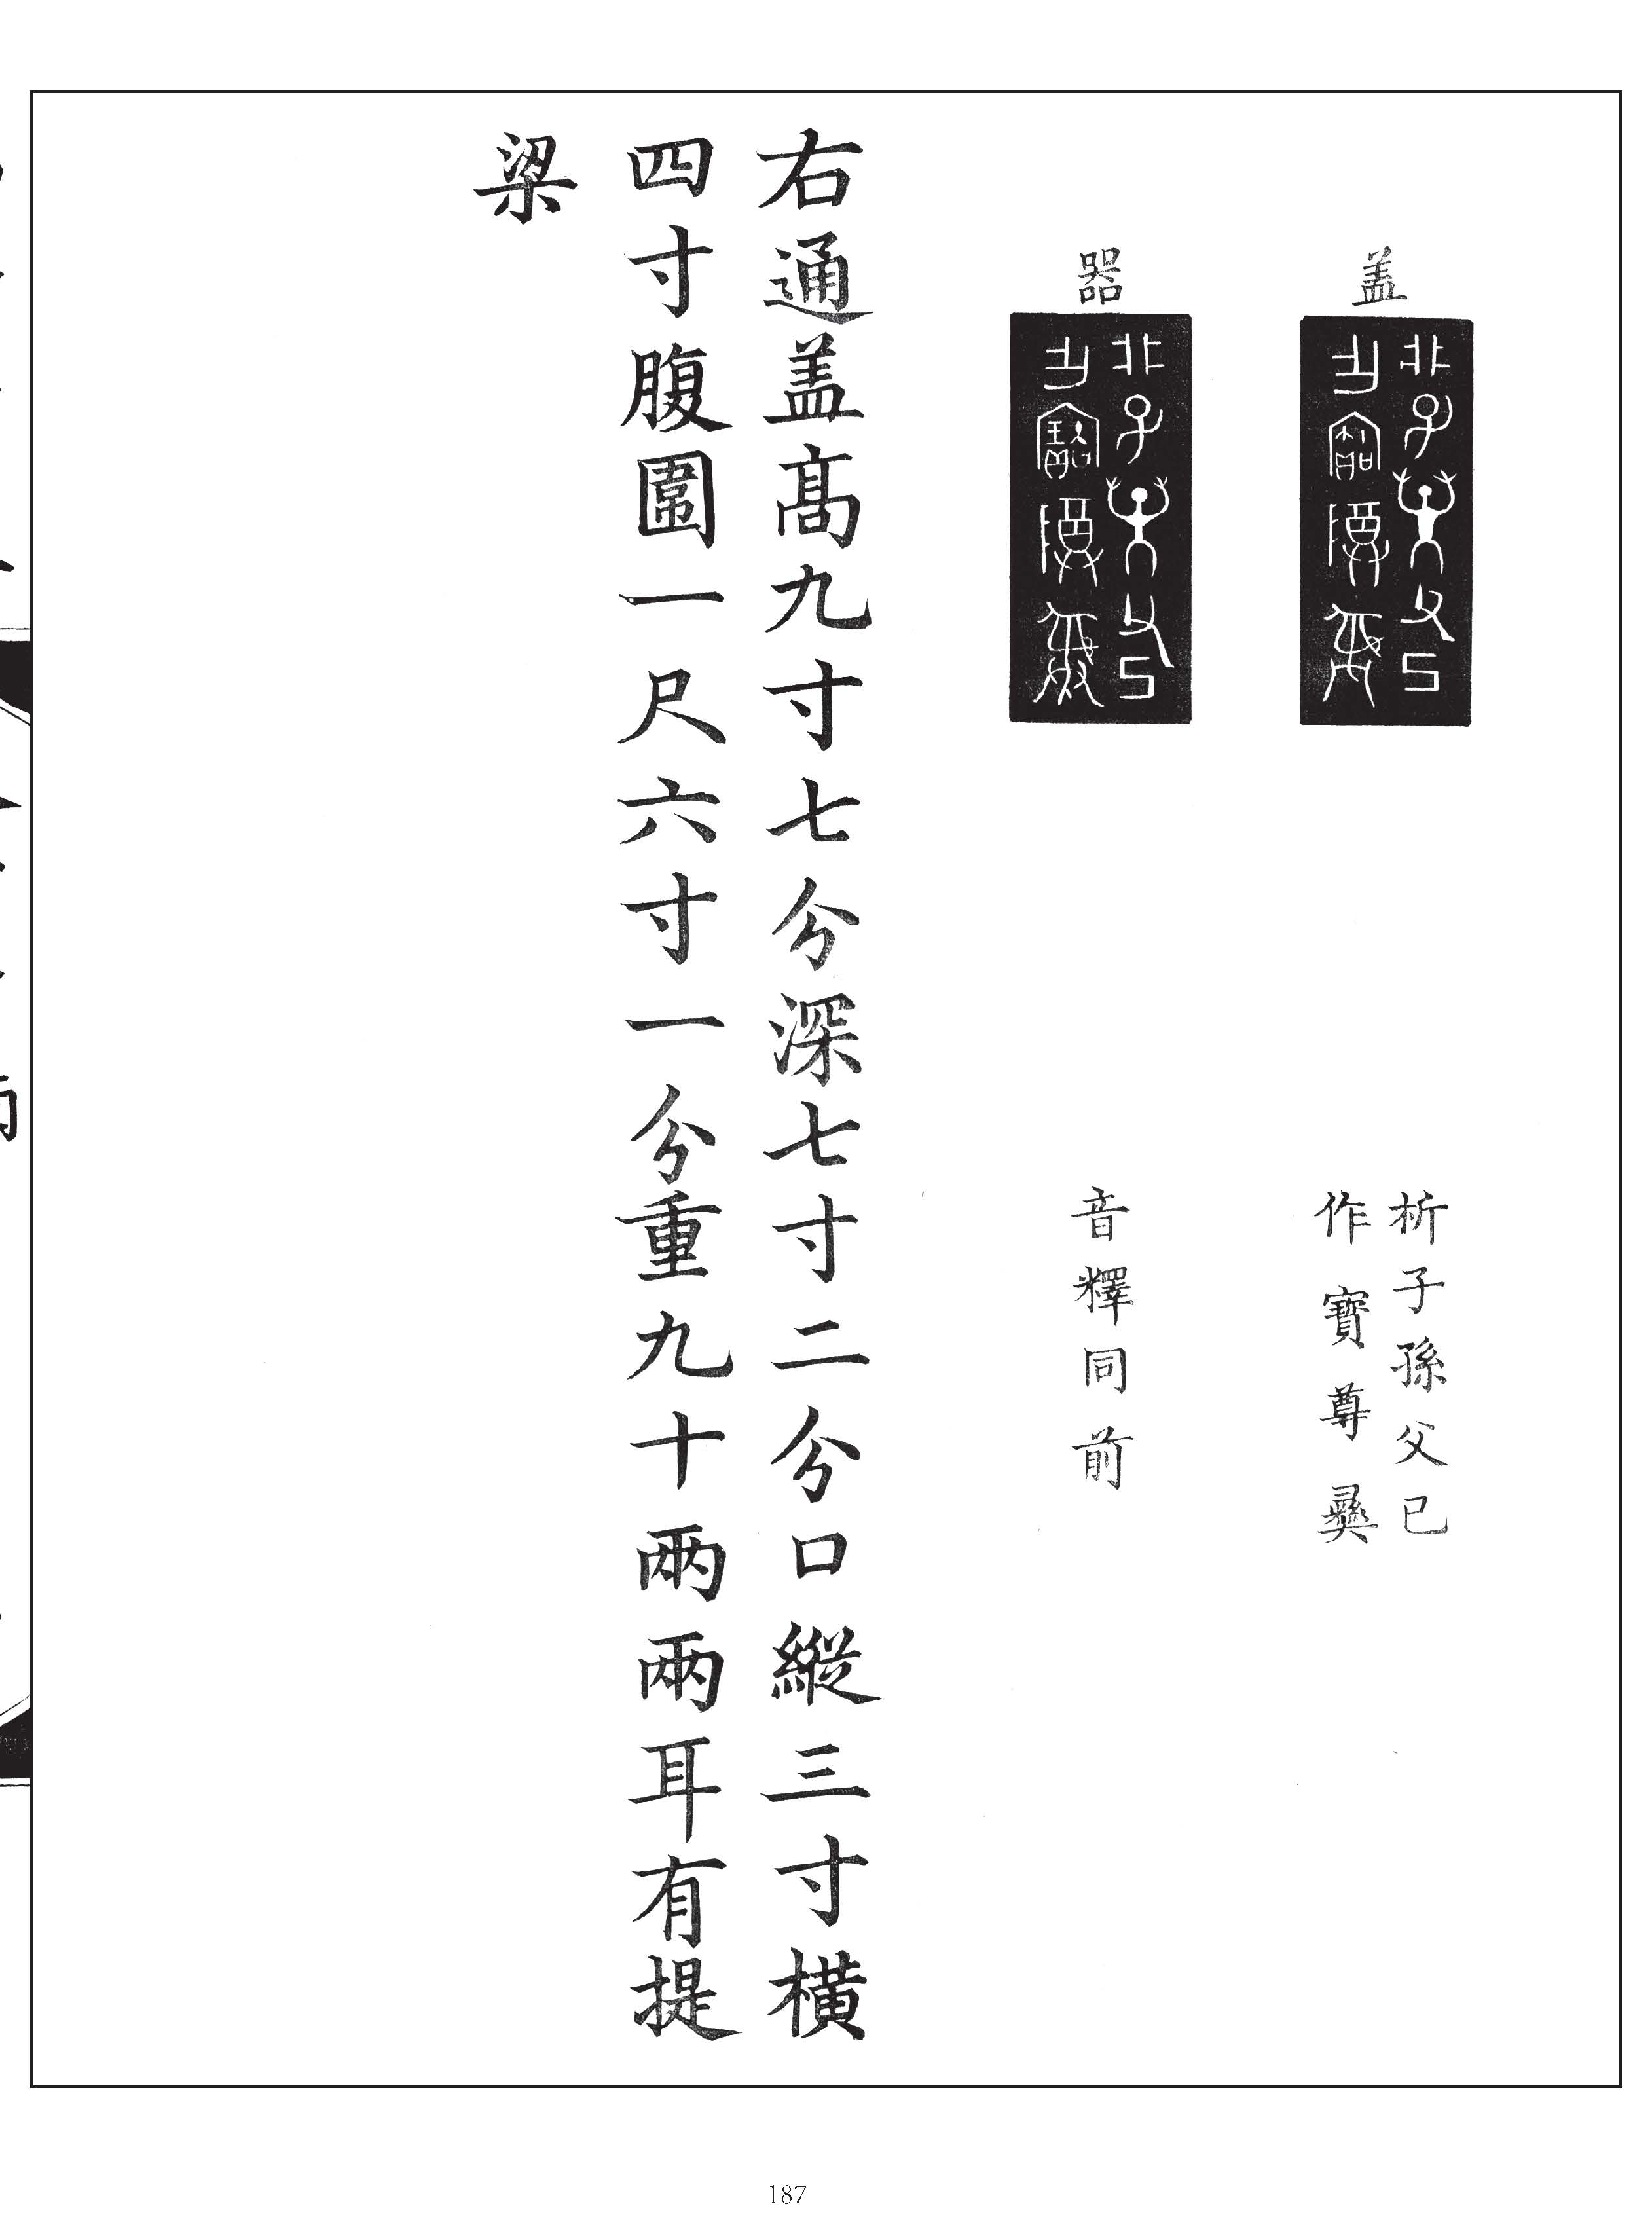 盖
析子孫父己
作寶尊彝
器
音釋同前
右通盖高九寸七分深七寸二分口縱三寸橫
四寸腹圍一尺六寸一分重九十兩兩耳有提
梁
187